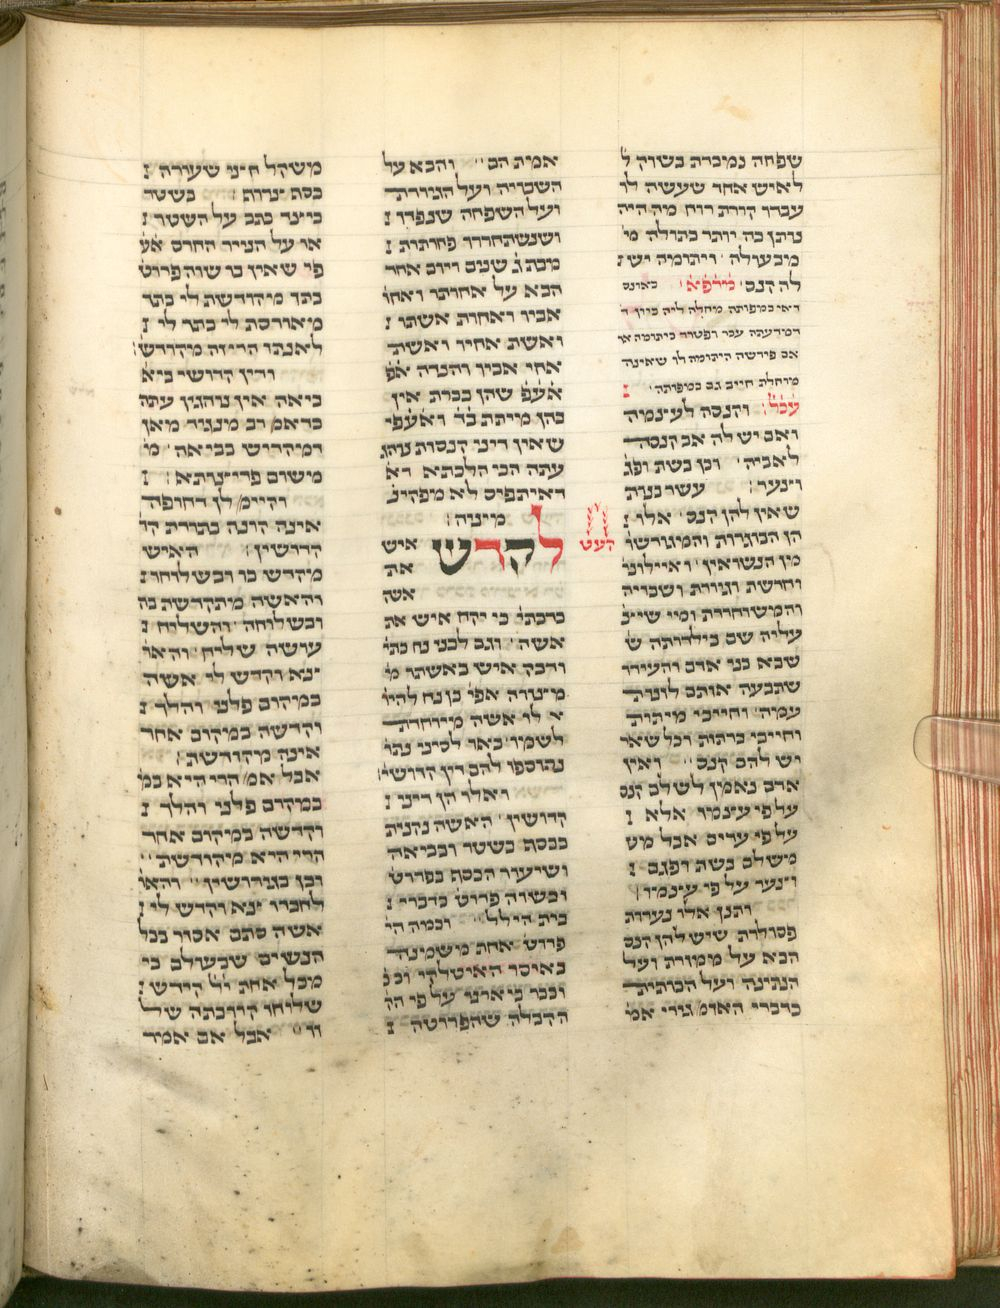 שפחה נמכרת בשוק ל
לאיש אחד שעשה לו
עבדו קורת רוח מה היה
נותן בה יותר בתולה מ
מבעולה ויתומה יש
לה קנס מלפא באונס
דאי במפותה מחלה ליה כיון ד
דמדעתה עבד ופטור ביתומה או
אם פירשה היתומה לו שאינה
מוחלת חייב גם במפותה
עכל וקנסה לעצמה
ואם יש לה אב קנסה
לאביה וכן בשת ופג
וצער עשר בנות
שאין להן קנס אלו
הן הבוגרות והממגורשו
מן הנשואין ואיילוני
וחרשת וגיורת ושבויה
והמשוחררת ומי שיי
עליה שם בילדותה ש
שבא בני אדם והעידו
שתבעה אותם לזנות
עמה וחייבי מיתות
וחייבי כרתות וכל שאר
יש להם קנס ואין
אדם נאמן לשלם קנס
על פי עצמו אלא
על פי עדים אבל מש
משלם בשת ופגם
וצער על פי עצמו
ותנן אלו נערות
פסולות שיש להן קנס
הבא על ממזרת ועל
הנתינה ועל הכותית
כדברי האומ גירי אמ
אמית הם והבא על
השבויה ועל הגיורת
ועל השפחה שנפדו
ושנשתחררו פחותות
מבת ג שנים ויום אחד
הבא על אחותו ואחו
אביו ואחות אשתו
ואשת אחיו ואשת
אחי אביו והנדה אפ
אעפ שהן בכרת אין
בהן מיתת בד ואעפי
שאין דיני קנסות נוהג
עתה הכי הלכתא דא
דאיתפיס לא מפקינ
מיניה
העט
לקדש איש
את
אשה
כדכתי כי יקח איש את
אשה וגם לבני נח כתי
ודבק איש באשתו מ
מצוה אפי בן נח להיו
לו אשה מיוחדת
לשמו באו לסיני נתו
נתוספו להם דין קדושי
ואלו הן דיני
קדושין האשה נקנית
בכסף בשטר ובביאה
ושיעור הכסף בפרוט
ובשוה פרוט כדברי
בית הילל וכמה הי
פרוט אחת משמינה
באיסר האיטלקי וכב
וכבר ביארנו על פי הק
הקבלה שהפרוטה
משקל חצי שעורה
כסף צרוף בשטר
כיצד כתב על השטר
או על הנייר החרס אע
פי שאין בו שוה פרוט
בתך מקודשת לי בתך
מאורסת לי בתך לי
לאנתו הרי זה מקודש
ודין קדושי ביא
ביאה אין נוהגין עתה
כדאמ רב מנגיד מאן
דמקדש בביאה מ
מישום פריצותא
וקיימ לן דחופה
אינה קונה בתורת קד
קדושין האיש
מקדש בו ובשלוחו
והאשה מתקדשת בה
ובשלוחה והשליח
עושה שליח והאו
צא וקדש לי אשה
במקום פלני והלך
וקדשה במקום אחר
אינה מקודשת
אבל אמ הרי היא במ
במקום פלני והלך
וקדשה במקום אחר
הרי היא מקודשת
וכן בגירושין והאו
לחברו צא וקדש לי
אשה סתם אסור בכל
הנשים שבעולם כי
מכל אחת יל קידש
שלוחו קרובתה של
זו אבל אם אמר